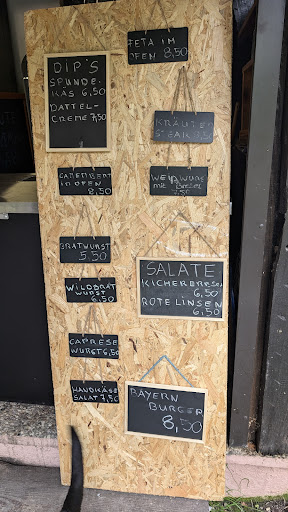 DIP'S
SPUNDE.
KÄS 6,50
DATTEL-
CREME 7,50
FETA IM
OFEN 8,50
KRÄUTER
STEAK 7,5
CAMEMBERT
IM OFEN
8,50
WEIßWURST
MIT Brezel
7,50
BRATWURST
5,50
SALATE
KICHERERBSEN
6,50
ROTE LINSEN
6,50
WILDBRAT
WURST
6,50
CAPRESE
WURST 6,50
HANDKÄSE
SALAT 7,50
BAYERN
BURGER
8,50